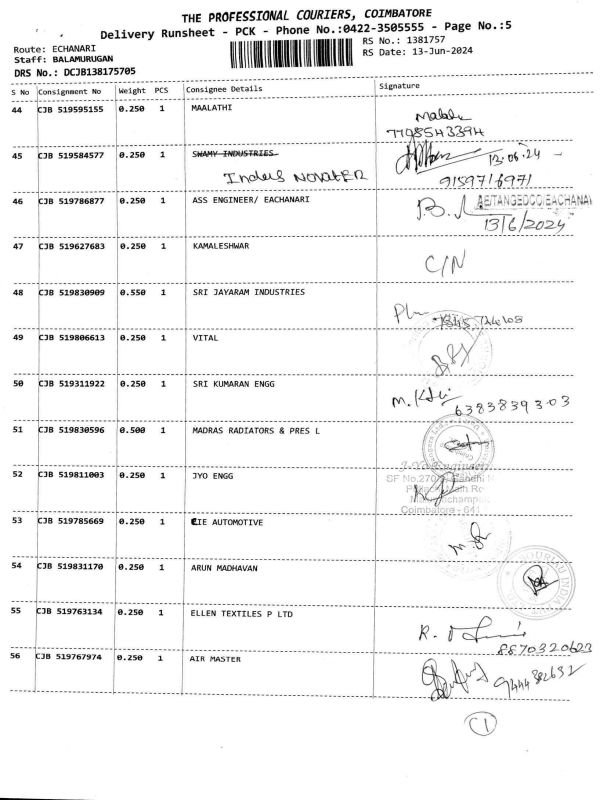 THE PROFESSIONAL COURIERS, COIMBATORE
Delivery Runsheet - PCK - Phone No.:0422-3505555 - Page No.:5
Route: ECHANARI
RS No.: 1381757
Staff: BALAMURUGAN
RS Date: 13-Jun-2024
DRS No.: DCJB138175705
S No Consignment No Weight PCS Consignee Details Signature
44 CJB 519595155 0.250 1 MAALATHI
45 CJB 519584577 0.250 1 SWAMY INDUSTRIES 13.06.24
9159716971
46 CJB 519786877 0.250 1 ASS ENGINEER/ EACHANARI AE/TANGEDCO/EACHANA
13/6/2024
47 CJB 519627683 0.250 1 KAMALESHWAR
C/N
48 CJB 519830909 0.550 1 SRI JAYARAM INDUSTRIES
49 CJB 519806613 0.250 1 VITAL
50 CJB 519311922 0.250 1 SRI KUMARAN ENGG
6383839303
51 CJB 519830596 0.500 1 MADRAS RADIATORS & PRES L
52 CJB 519811003 0.250 1 JYO ENGG
Coimbatore - 641
53 CJB 519785669 0.250 1 CIE AUTOMOTIVE
54 CJB 519831170 0.250 1 ARUN MADHAVAN
55 CJB 519763134 0.250 1 ELLEN TEXTILES P LTD
8870320623
56 CJB 519767974 0.250 1 AIR MASTER
C1